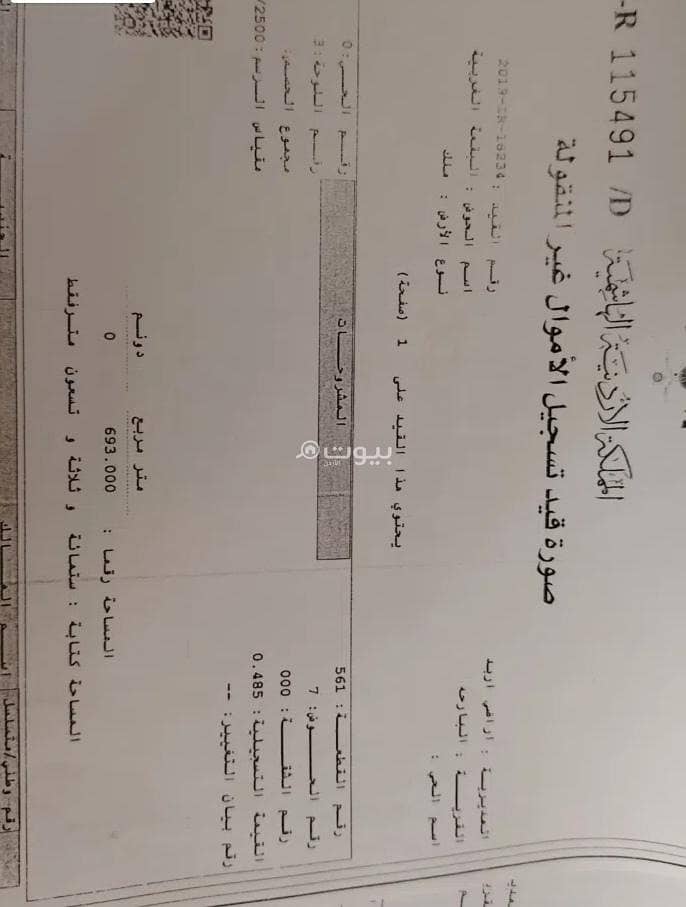 -R 115491 /D
المملكة الأردنية الهاشمية
صورة قيد تسجيل الأموال غير المنقولة
المديرية : اراضي اربد
رقم القيد : 2019-IR-16234
القرية : البارحه
اسم الحوض : البقعة الغربية
اسم الحي :
نوع الأرض : ملك
يحتوي هذا القيد على 1 (صفحة)
المشروحات
بيوت
الأردن
رقم القطعة : 561
رقم الحي : 0
رقم الحوض : 7
رقم اللوحة : 3
رقم الشقة : 000
مجموع الحصص :
القيمة التسجيلية : 0.485
مقياس الرسم : 2500/
رقم بيان التغيير : --
متر مربع دونم
المساحة رقما : 693.000 0
المساحة كتابة : ستمائة و ثلاثة و تسعون متر فقط
رقم وطني/متسلسل
اسم المالك